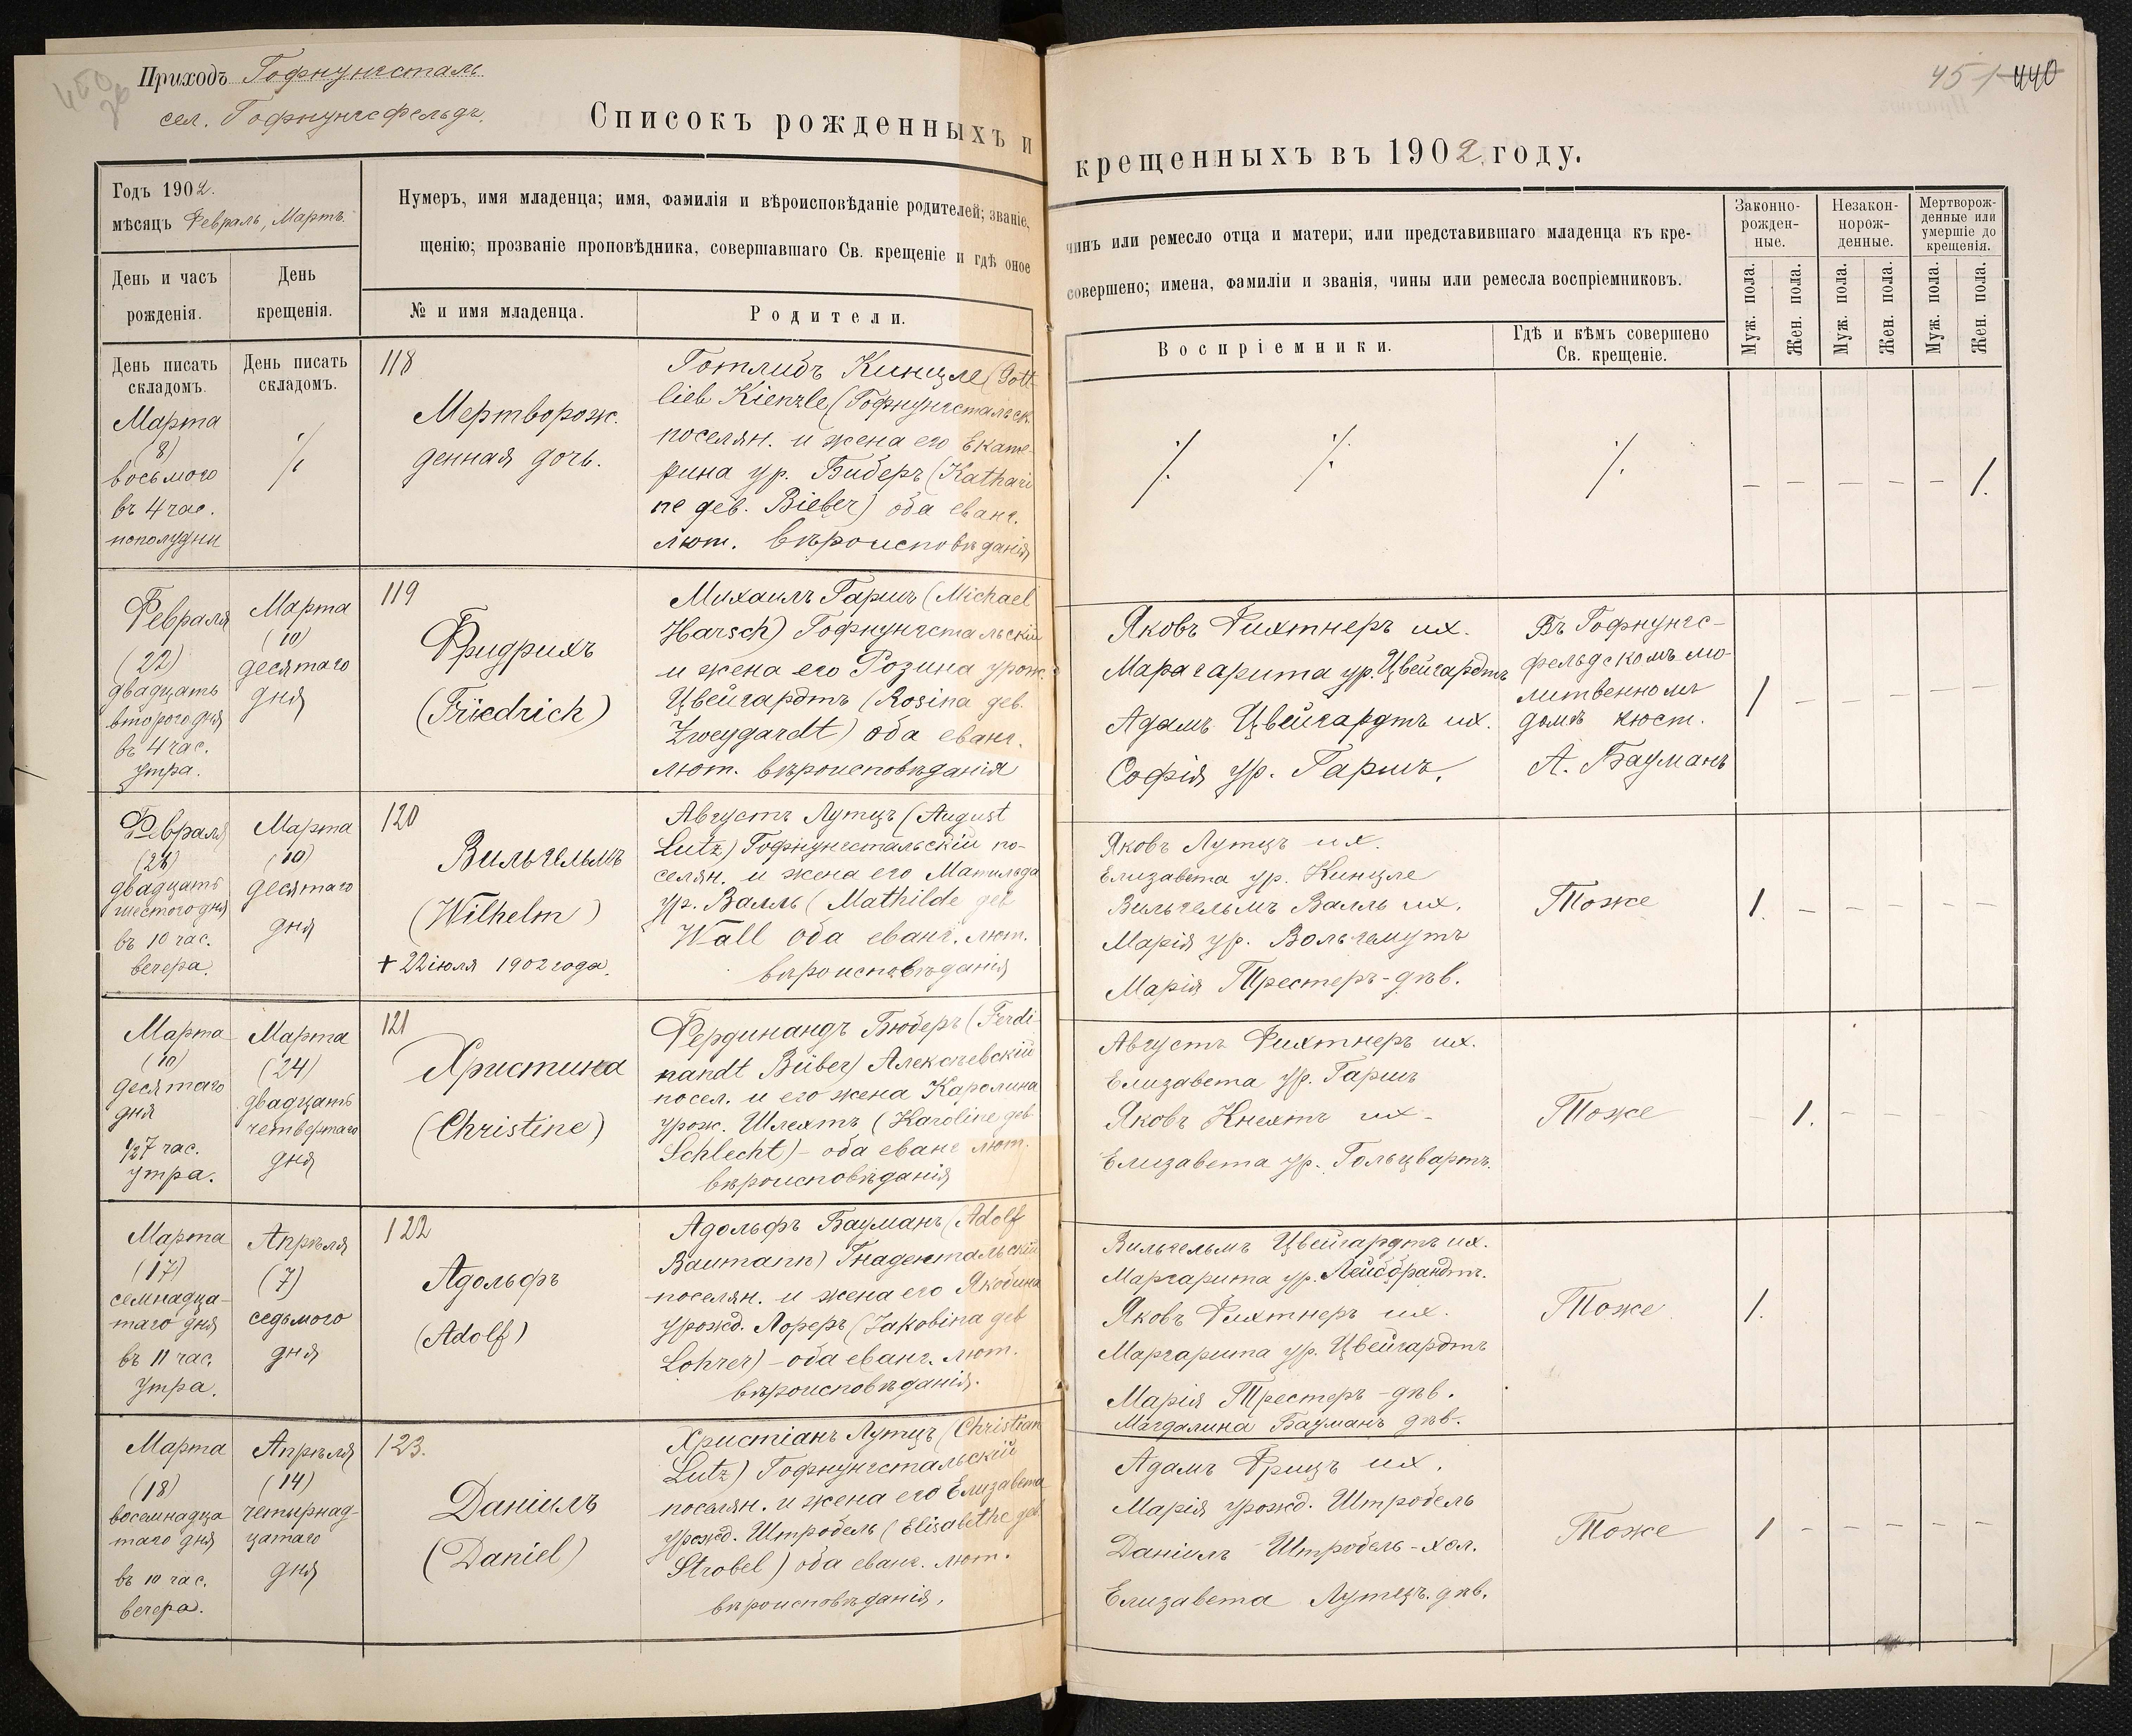 450
об
Приходъ Гофнунгсталь
сел. Гофнунгсфельдъ.
451 440
Списокъ рожденныхъ и крещенныхъ въ 1902 году.
Годъ 1902.
мѣсяцъ Февраль, Мартъ.
День и часъ
рожденія.
День
крещенія.
Нумеръ, имя младенца; имя, фамилія и вѣроисповѣданіе родителей; званіе,
щенію; прозваніе проповѣдника, совершавшаго Св. крещеніе и гдѣ оное
№ и имя младенца.
Родители.
чинъ или ремесло отца и матери; или представившаго младенца къ кре-
совершено; имена, фамиліи и званія, чины или ремесла воспріемниковъ.
Воспріемники.
Гдѣ и кѣмъ совершено
Св. крещеніе.
Законно-
рожден-
ные.
Незакон-
норож-
денные.
Мертворож-
денные или
умершіе до
крещенія.
Муж. пола.
Жен. пола.
Муж. пола.
Жен. пола.
Муж. пола.
Жен. пола.
День писать
складомъ.
День писать
складомъ.
Марта
(8)
восьмого
въ 4 час.
пополудни
⁒
118
Мертворож.
денная дочь.
Готлибъ Кинцле (Gott-
lieb Kienzle (Гофнунгстальск.
поселян. и жена его Екате-
рина ур. Биберъ (Kathari
ne geb. Bieber) оба еванг.
лют. вѣроисповѣданія
⁒ ⁒ ⁒
— — — — — 1.
Февраля
(22)
двадцать
второго дня
въ 4 час.
утра.
Марта
(10)
десятаго
дня
119
Фридрихъ
(Friedrich)
Михаилъ Гаршъ (Michael
Harsch) Гофнунгстальскій
и жена его Розина урож.
Цвейгардтъ (Rosina geb.
Zweygardt) оба еванг.
лют. вѣроисповѣданія
Яковъ Фихтнеръ их.
Марагарита ур. Цвейгардтъ
Адамъ Цвейгардтъ их.
Софія ур. Гаршъ.
Въ Гофнунгс-
фельдскомъ мо-
литвенномъ
домѣ кюст.
А. Бауманъ
1 — — — — —
Февраля
(26)
двадцать
шестого дня
въ 10 час.
вечера.
Марта
(10)
десятаго
дня
120
Вильгельмъ
(Wilhelm)
+ 22 іюля 1902 года.
Августъ Лутцъ (August
Lutz) Гофнунгстальскій по-
селян. и жена его Матильда
ур. Валль (Mathilde geb
Wall оба еванг. лют.
вѣроисповѣданія
Яковъ Лутцъ их.
Елизавета ур. Кинцле
Вильгельмъ Валль их.
Марія ур. Вольгемутъ
Марія Трестеръ-дѣв.
Тоже
1. — — — — —
Марта
(10)
десятаго
дня
½7 час.
утра.
Марта
(24)
двадцать
четвертаго
дня
121
Христина
(Christine)
Фердинандъ Бюберъ (Ferdi-
nandt Büber) Алексѣевскій
посел. и его жена Каролина
урож. Шлехтъ (Karoline geb
Schlecht) – оба еванг лют.
вѣроисповѣданія
Августъ Фихтнеръ их.
Елизавета ур. Гаршъ
Яковъ Кнехтъ их –
Елизавета ур. Гольцвартъ.
Тоже
— 1. — — — —
Марта
(17)
семнадца-
таго дня
въ 11 час.
утра.
Апрѣля
(7)
седьмого
дня
122
Адольфъ
(Adolf)
Адольфъ Бауманъ (Adolf
Baumann) Гнадентальскій
поселян. и жена его Якобина
урожд. Лореръ (Jakobina geb
Lohrer) – оба еванг. лют.
вѣроисповѣданія.
Вильгельмъ Цвейгардтъ их.
Маргарита ур. Лейббрандтъ.
Яковъ Фихтнеръ их.
Маргарита ур. Цвейгардтъ
Марія Трестеръ – дѣв.
Магдалина Бауманъ дѣв.
Тоже
1.
Марта
(18)
восемнадца
таго дня
въ 10 час.
вечера.
Апрѣля
(14)
четырнад-
цатаго
дня
123.
Даніилъ
(Daniel)
Христіанъ Лутцъ (Christian
Lutz) Гофнунгстальскій
поселян. и жена его Елизавета
урожд. Штробель (Elisabethe geb.
Strobel) оба еванг. лют.
вѣроисповѣданія.
Адамъ Фрицъ их.
Марія урожд. Штробель
Даніилъ Штробель – хол.
Елизавета Лутцъ. дѣв.
Тоже
1 — — — — —